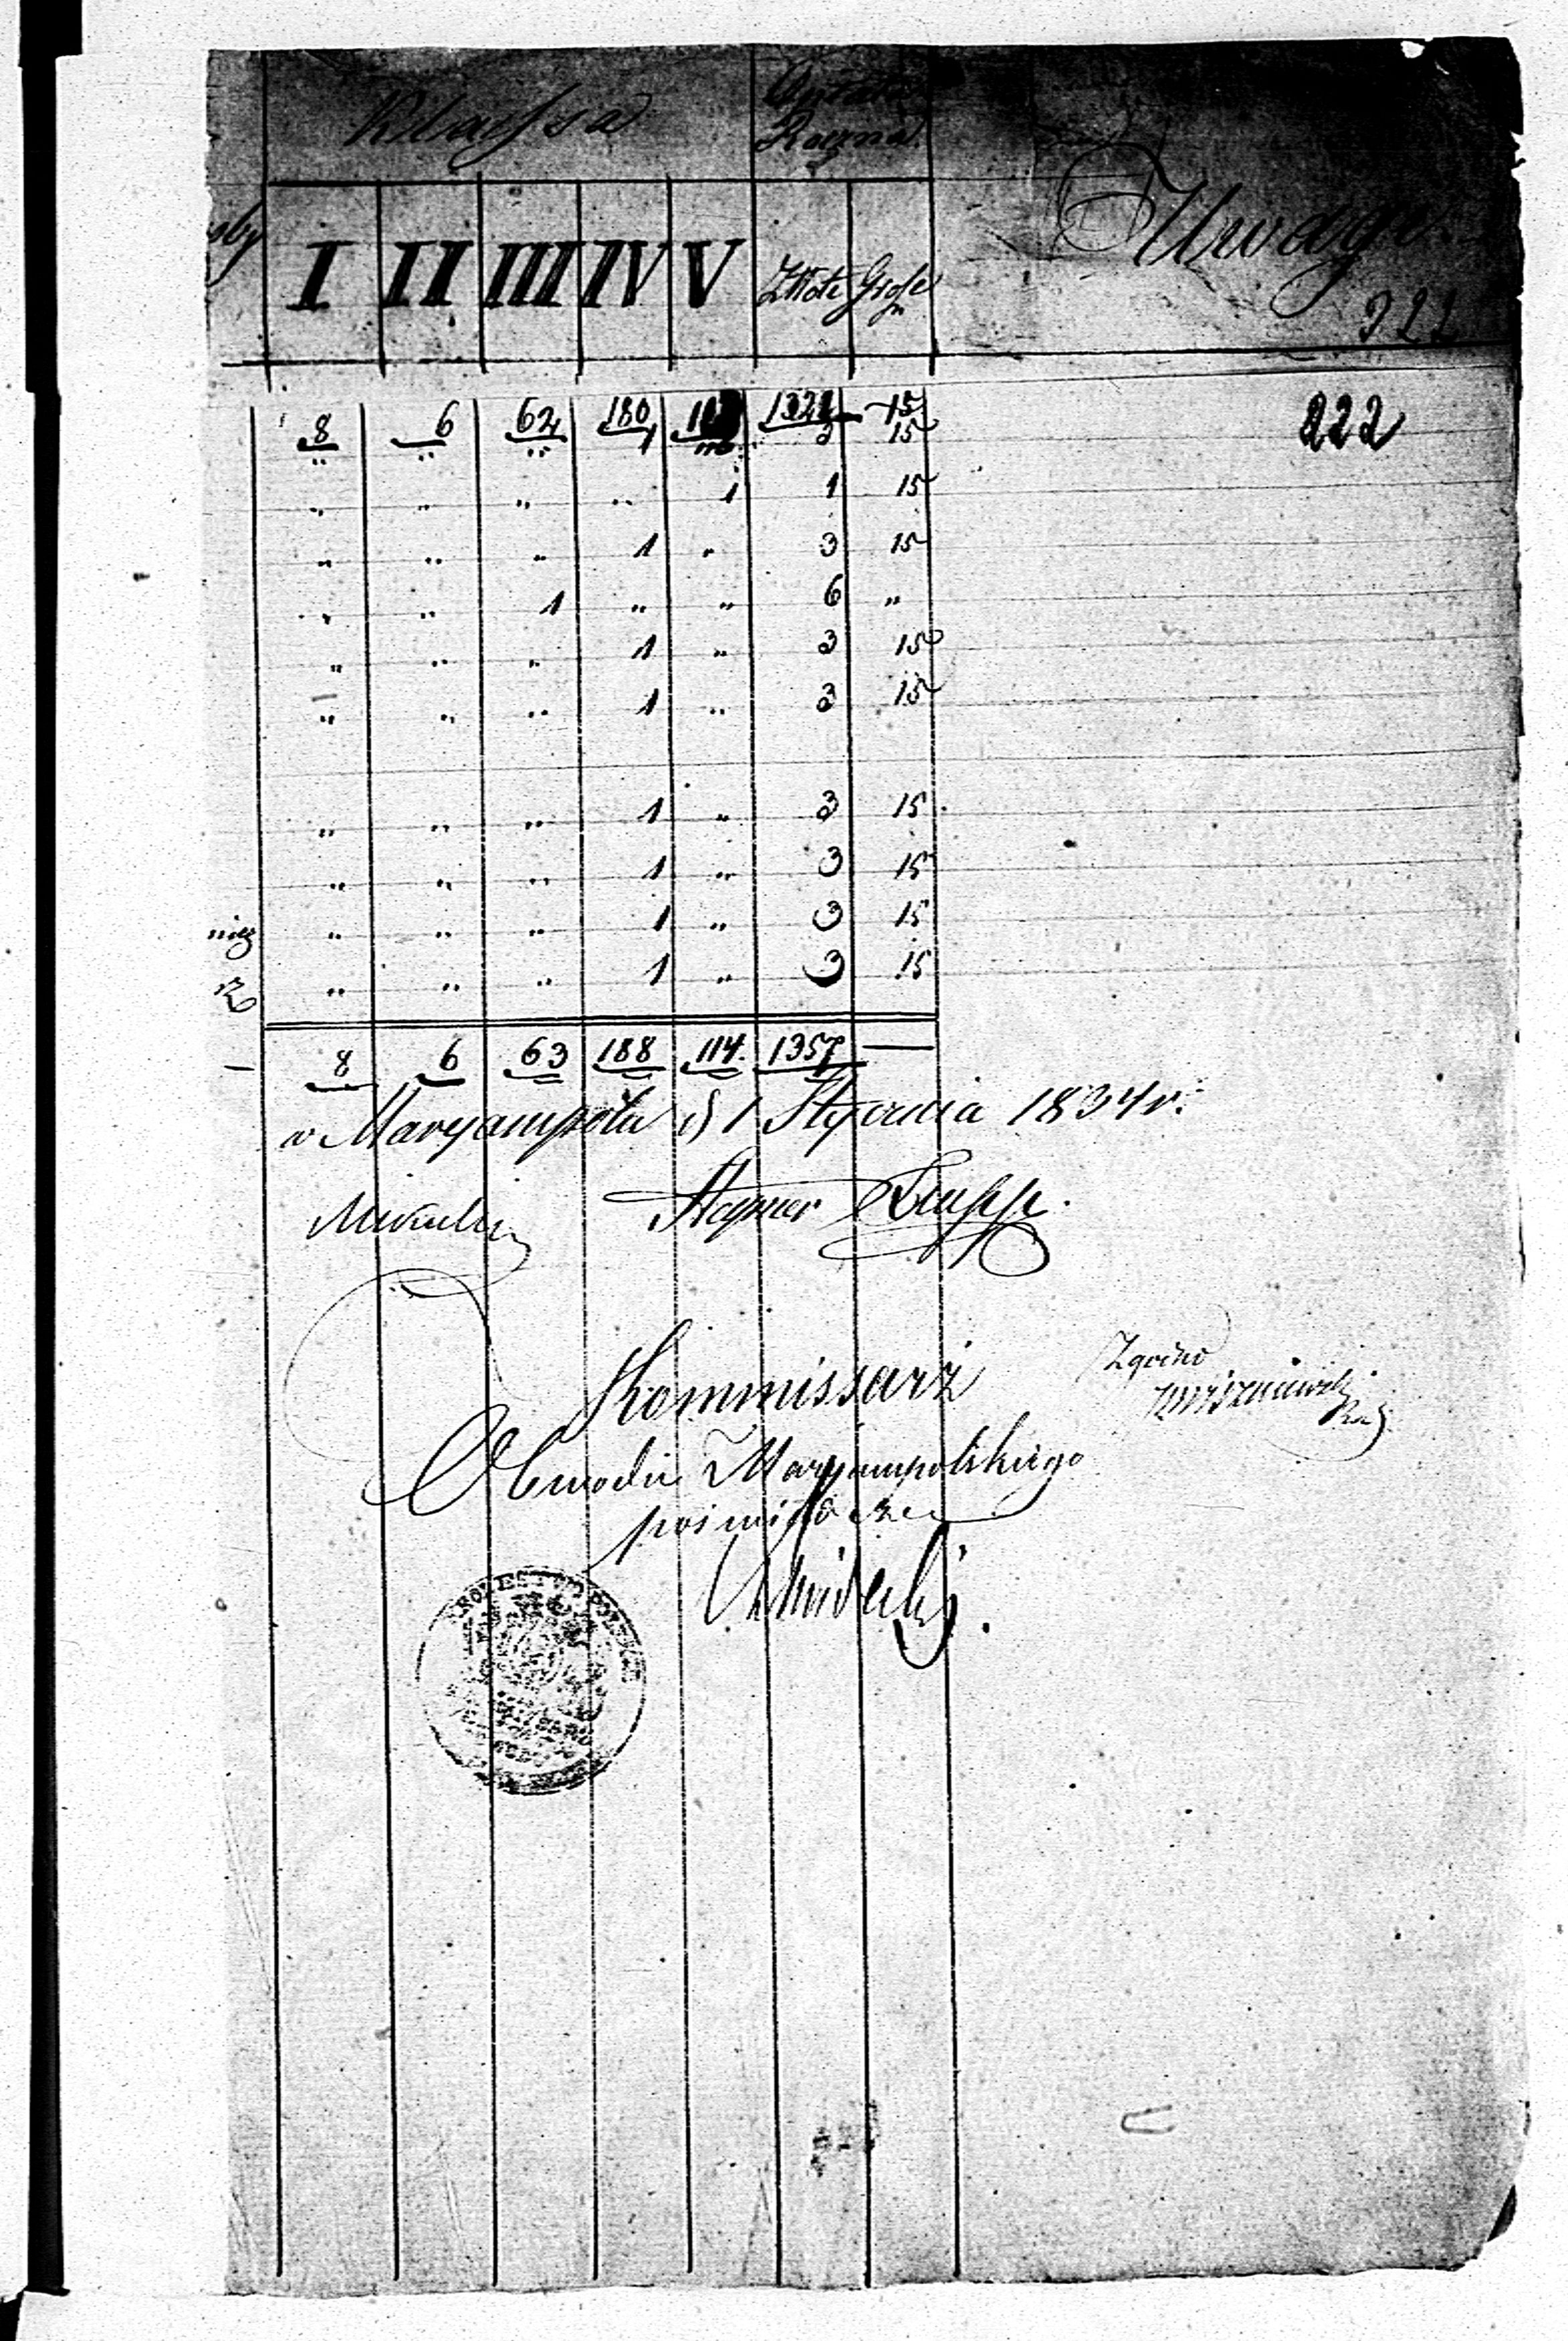 Klassa Opłata
Roczna
Uwagi
I II III IV V Złote Grosze
322
8 6 62 180 1321 15
222
" " " 1 " 3 15
" " " " 1 1 15
" " " 1 " 3 15
" " 1 " " 6 "
" " " 1 " 3 15
" " " 1 " 3 15
" " " 1 " 3 15
" " " 1 " 3 15
" " " 1 " 3 15
" " " 1 " 3 15
8 6 63 188 114 1357 —
w Maryampolu d 1 Stycznia 1834 r.
Kommissarz
Zgodno
Obwodu Maryampolskiego
poświadcza